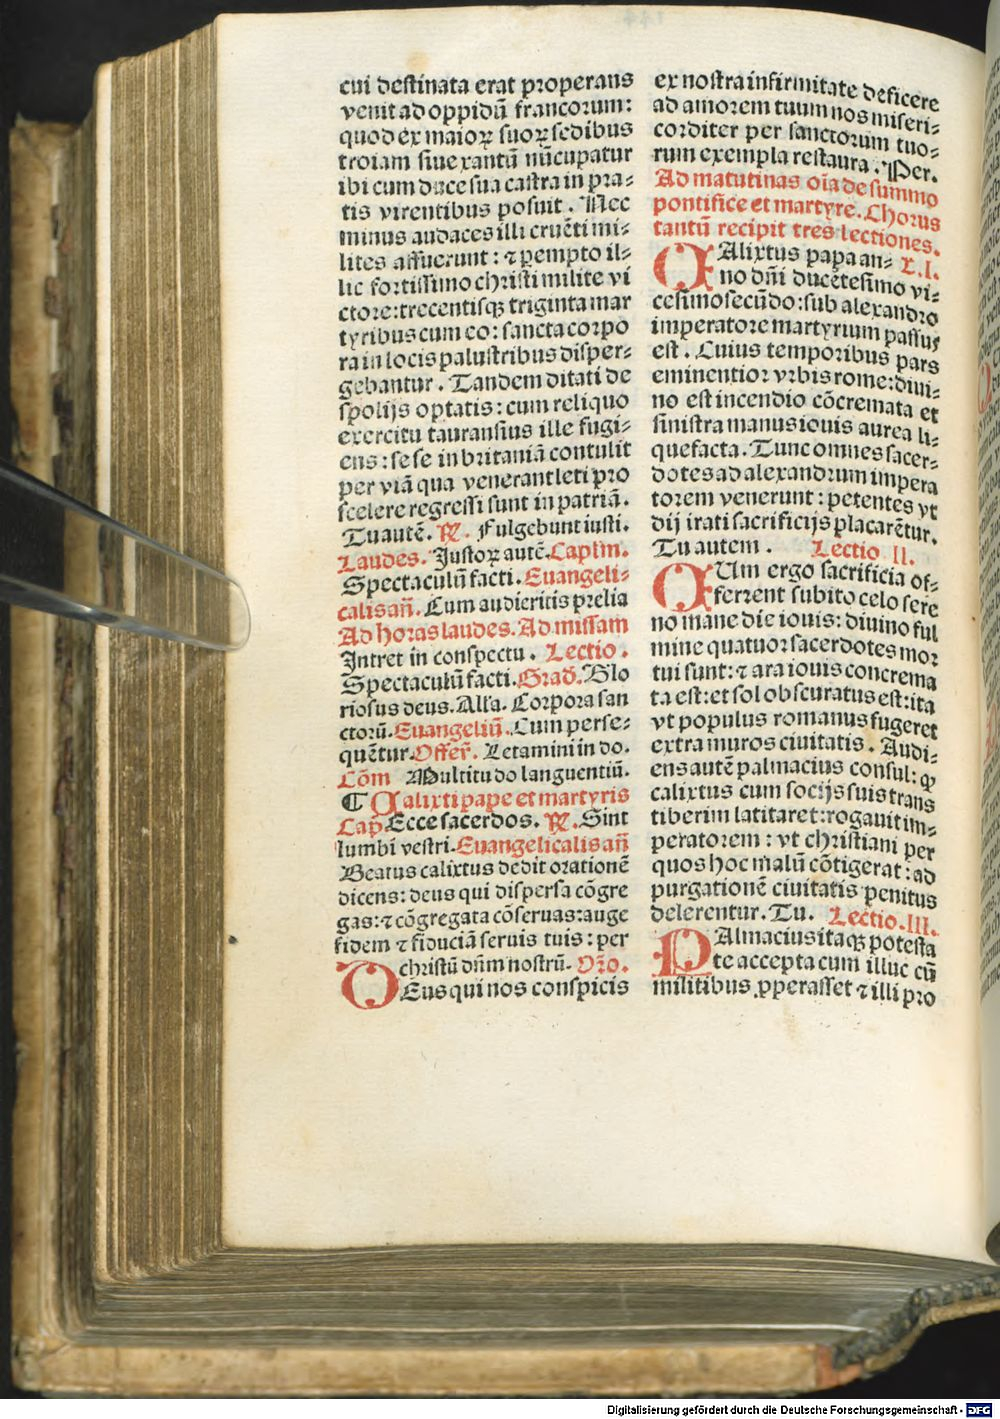 cui destinata erat properans
venit ad oppidū francorum:
quod ex maioꝝ suoꝝ sedibus
troiam siue xantū nūcupatur
ibi cum duce sua castra in pra-
tis virentibus posuit. Nec
minus audaces illi cruēti mi-
lites affuerunt: ⁊ ꝑempto il-
lic fortissimo christi milite vi
ctore: trecentisqꝫ triginta mar
tyribus cum eo: sancta corpo
ra in locis palustribus disper-
gebantur. Tandem ditati de
spolijs optatis: cum reliquo
exercitu tauransius ille fugi-
ens: sese in britaniā contulit
per viā qua venerant leti pro
scelere regressi sunt in patriā.
Tu autē. ℟. Fulgebunt iusti.
Laudes. Justoꝝ autē. Caplm̄.
Spectaculū facti. Euangeli-
calis an̄. Cum audieritis prelia
Ad horas laudes. Ad missam
Intret in conspectu. Lectio.
Spectaculū facti. Grad̄. Glo
riosus deus. Alľa. Corpora san
ctorū. Euangeliū. Cum perse-
quētur. Offer̄. Letamini in do.
Cōm Multitudo languentiū.
¶ Calixti pape et martyris
Cap̄ Ecce sacerdos. ℟. Sint
lumbi vestri. Euangelicalis an̄
Beatus calixtus dedit orationē
dicens: deus qui dispersa cōgre
gas: ⁊ cōgregata cōseruas: auge
fidem ⁊ fiduciā seruis tuis: per
christū dn̄m nostrū. Oro̅.
DEus qui nos conspicis
ex nostra infirmitate deficere
ad amorem tuum nos miseri-
corditer per sanctorum tuo-
rum exempla restaura. Per.
Ad matutinas oīa de summo
pontifice et martyre. Chorus
tantū recipit tres lectiones.
CAlixtus papa an- L. I.
no dn̄i ducētesimo vi-
cesimosecūdo: sub alexandro
imperatore martyrium passus
est. Cuius temporibus pars
eminentior vrbis rome: diui-
no est incendio cōcremata et
sinistra manus iouis aurea li-
quefacta. Tunc omnes sacer-
dotes ad alexandrum impera
torem venerunt: petentes vt
dij irati sacrificijs placarētur.
Tu autem. Lectio II.
CUm ergo sacrificia of-
ferrent subito celo sere
no mane die iouis: diuino ful
mine quatuor sacerdotes mor
tui sunt: ⁊ ara iouis concrema
ta est: et sol obscuratus est: ita
vt populus romanus fugeret
extra muros ciuitatis. Audi-
ens autē palmacius consul: ꝙ
calixtus cum socijs suis trans
tiberim latitaret: rogauit im-
peratorem: vt christiani per
quos hoc malū cōtigerat: ad
purgationē ciuitatis penitus
delerentur. Tu. Lectio. III.
PAlmacius itaqꝫ potesta
te accepta cum illuc cū
militibus ꝓperasset ⁊ illi pro
Digitalisierung gefördert durch die Deutsche Forschungsgemeinschaft - DFG